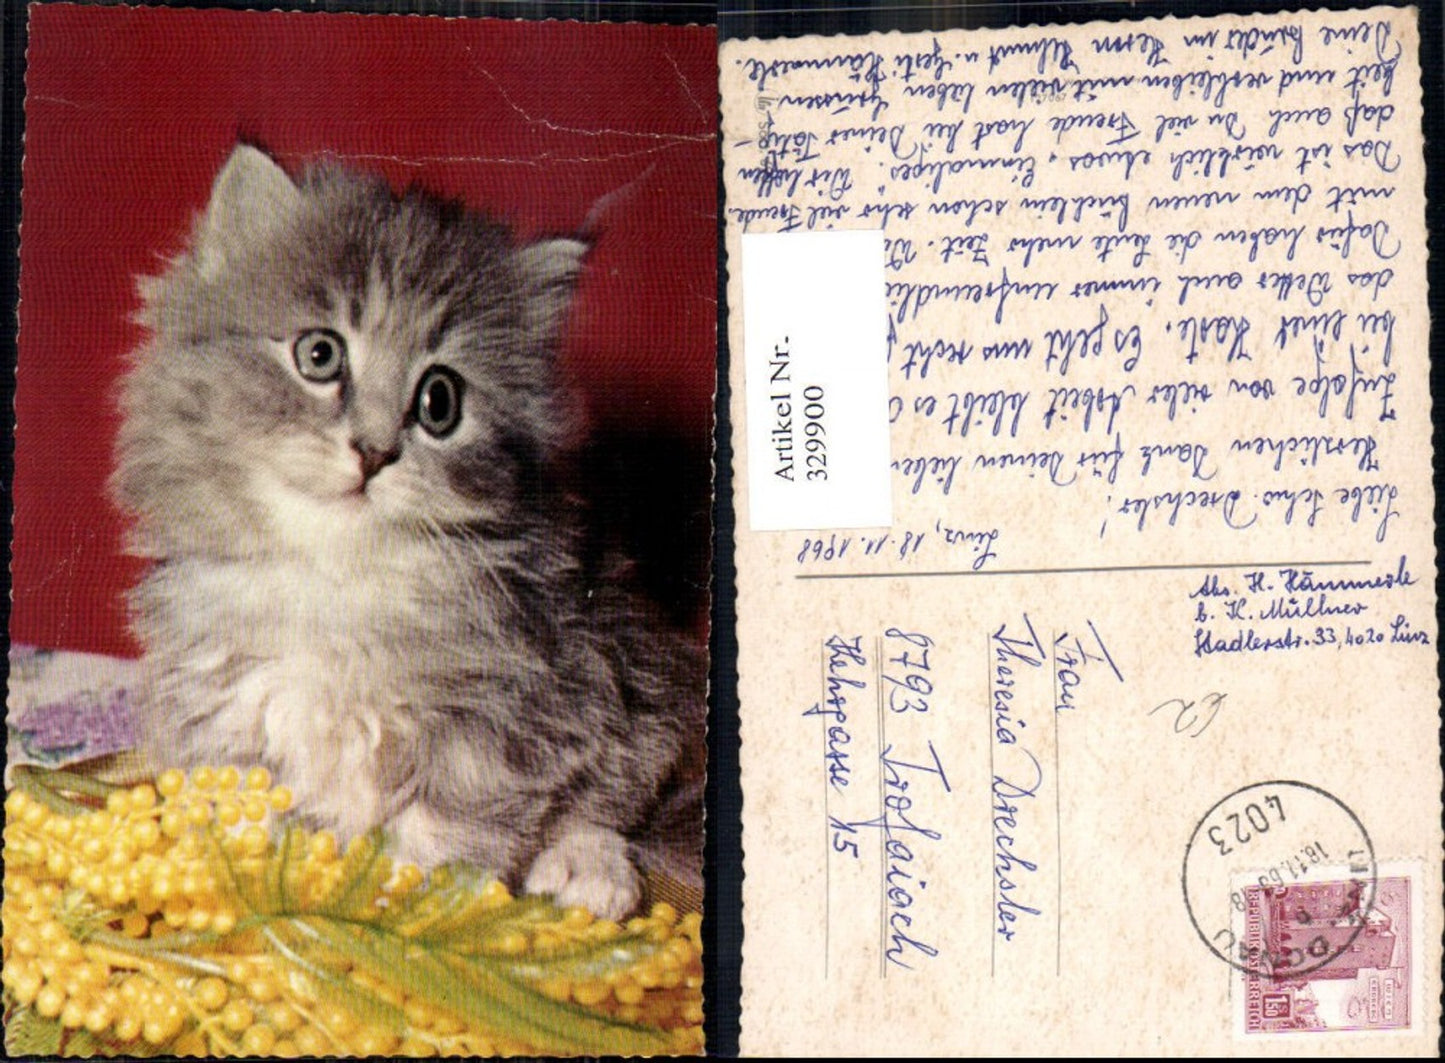 Linz, 18.11.1968
Liebe Schw. Drechsler!
Herzlichen Dank für Deinen lieben
Zufolge von vieler Arbeit bleibt es
bei einer Karte. Es geht uns recht
das Wetter auch immer unfreundli
Dafür haben die Leute mehr Zeit. W
mit dem neuen Büchlein schon sehr viel Freude.
Das ist wirklich etwas "Einmaliges". Wir hoffen
daß auch Du viel Freude hast bei Deiner Tätig-
keit und verbleiben mit vielen lieben Grüssen
Deine Brüder im Herrn Helmut u. Gerti Hämmerle.
Artikel Nr.
329900
Abs. H. Hämmerle
b. K. Müllner
Stadlerstr. 33, 4020 Linz
Frau
Theresia Drechsler
8793 Trofaiach
Rehgasse 15
4023
18.11.68-18
LINZ
DONAU
REPUBLIK ÖSTERREICH
1.50
WIEN